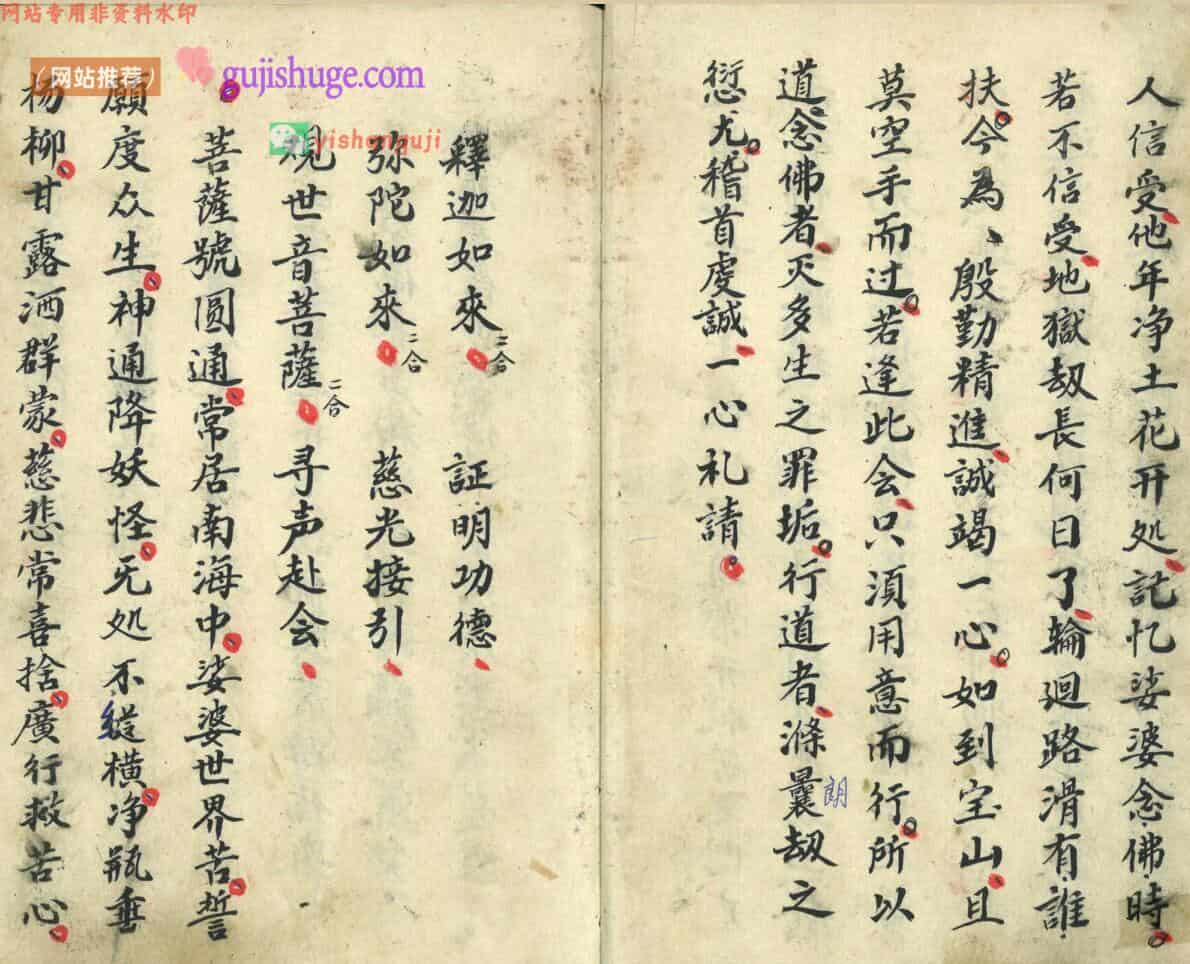 网站专用非资料水印
（网站推荐）
gujishuge.com
yishanguji
人信受他年净土花开处記忆娑婆念佛時
若不信受地獄刼長何日了輪廻路滑有誰
扶今為、殷勤精進誠竭一心如到宝山且
莫空手而过若逢此会只須用意而行所以
道念佛者灭多生之罪垢行道者滌曩刼之
朗
愆尤稽首虔誠一心礼請
釋迦如來二合 証明功德
弥陀如來二合 慈光接引
观世音菩薩二合 寻声赴会
菩薩號圆通常居南海中娑婆世界苦誓
願度众生神通降妖怪无处不縱横净瓶垂
杨柳甘露洒群蒙慈悲常喜捨廣行救苦心